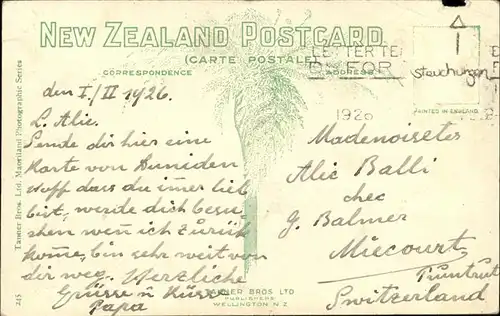 NEW ZEALAND POSTCARD.
(CARTE POSTALE)
CORRESPONDENCE
ADDRESS
LETTER TE
FOR
1926
PRINTED IN ENGLAND
den I/II 1926.
L. Alic.
Sende dir hier eine
Karte von Duniden
hoff dass du imer lieb
bist, werde dich besu-
chen wen̄ ich zurük
kome, bin sehr weit von
dir weg. Herzliche
Grüsse u Küsse
Papa
Madenoiseles
Alic Balli
chec
G. Balmer
Miecourt,
Pruntrut
Switzerland
TANNER BROS LTD
PUBLISHERS
WELLINGTON N.Z
Tanner Bros. Ltd. Maoriland Photographic Series
245